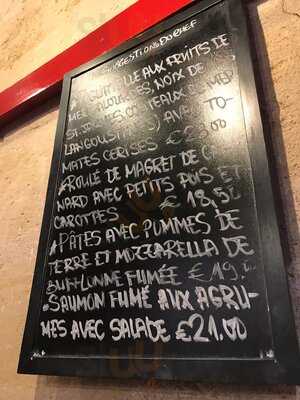 SUGGESTIONS DU CHEF
AUX FRUITS DE
MER NOIX DE
ST. JACQUES,
LANGOUSTINES) AVEC TO-
MATES CERISES €
ROULÉ DE MAGRET DE CA
NARD AVEC PETITS POIS ET
CAROTTES € 18,50
PÂTES AVEC POMMES DE
TERRE ET MOZZARELLA DE
BUFLONNE FUMÉE € 19
• SAUMON FUMÉ AUX AGRU-
MES AVEC SALADE €21.00